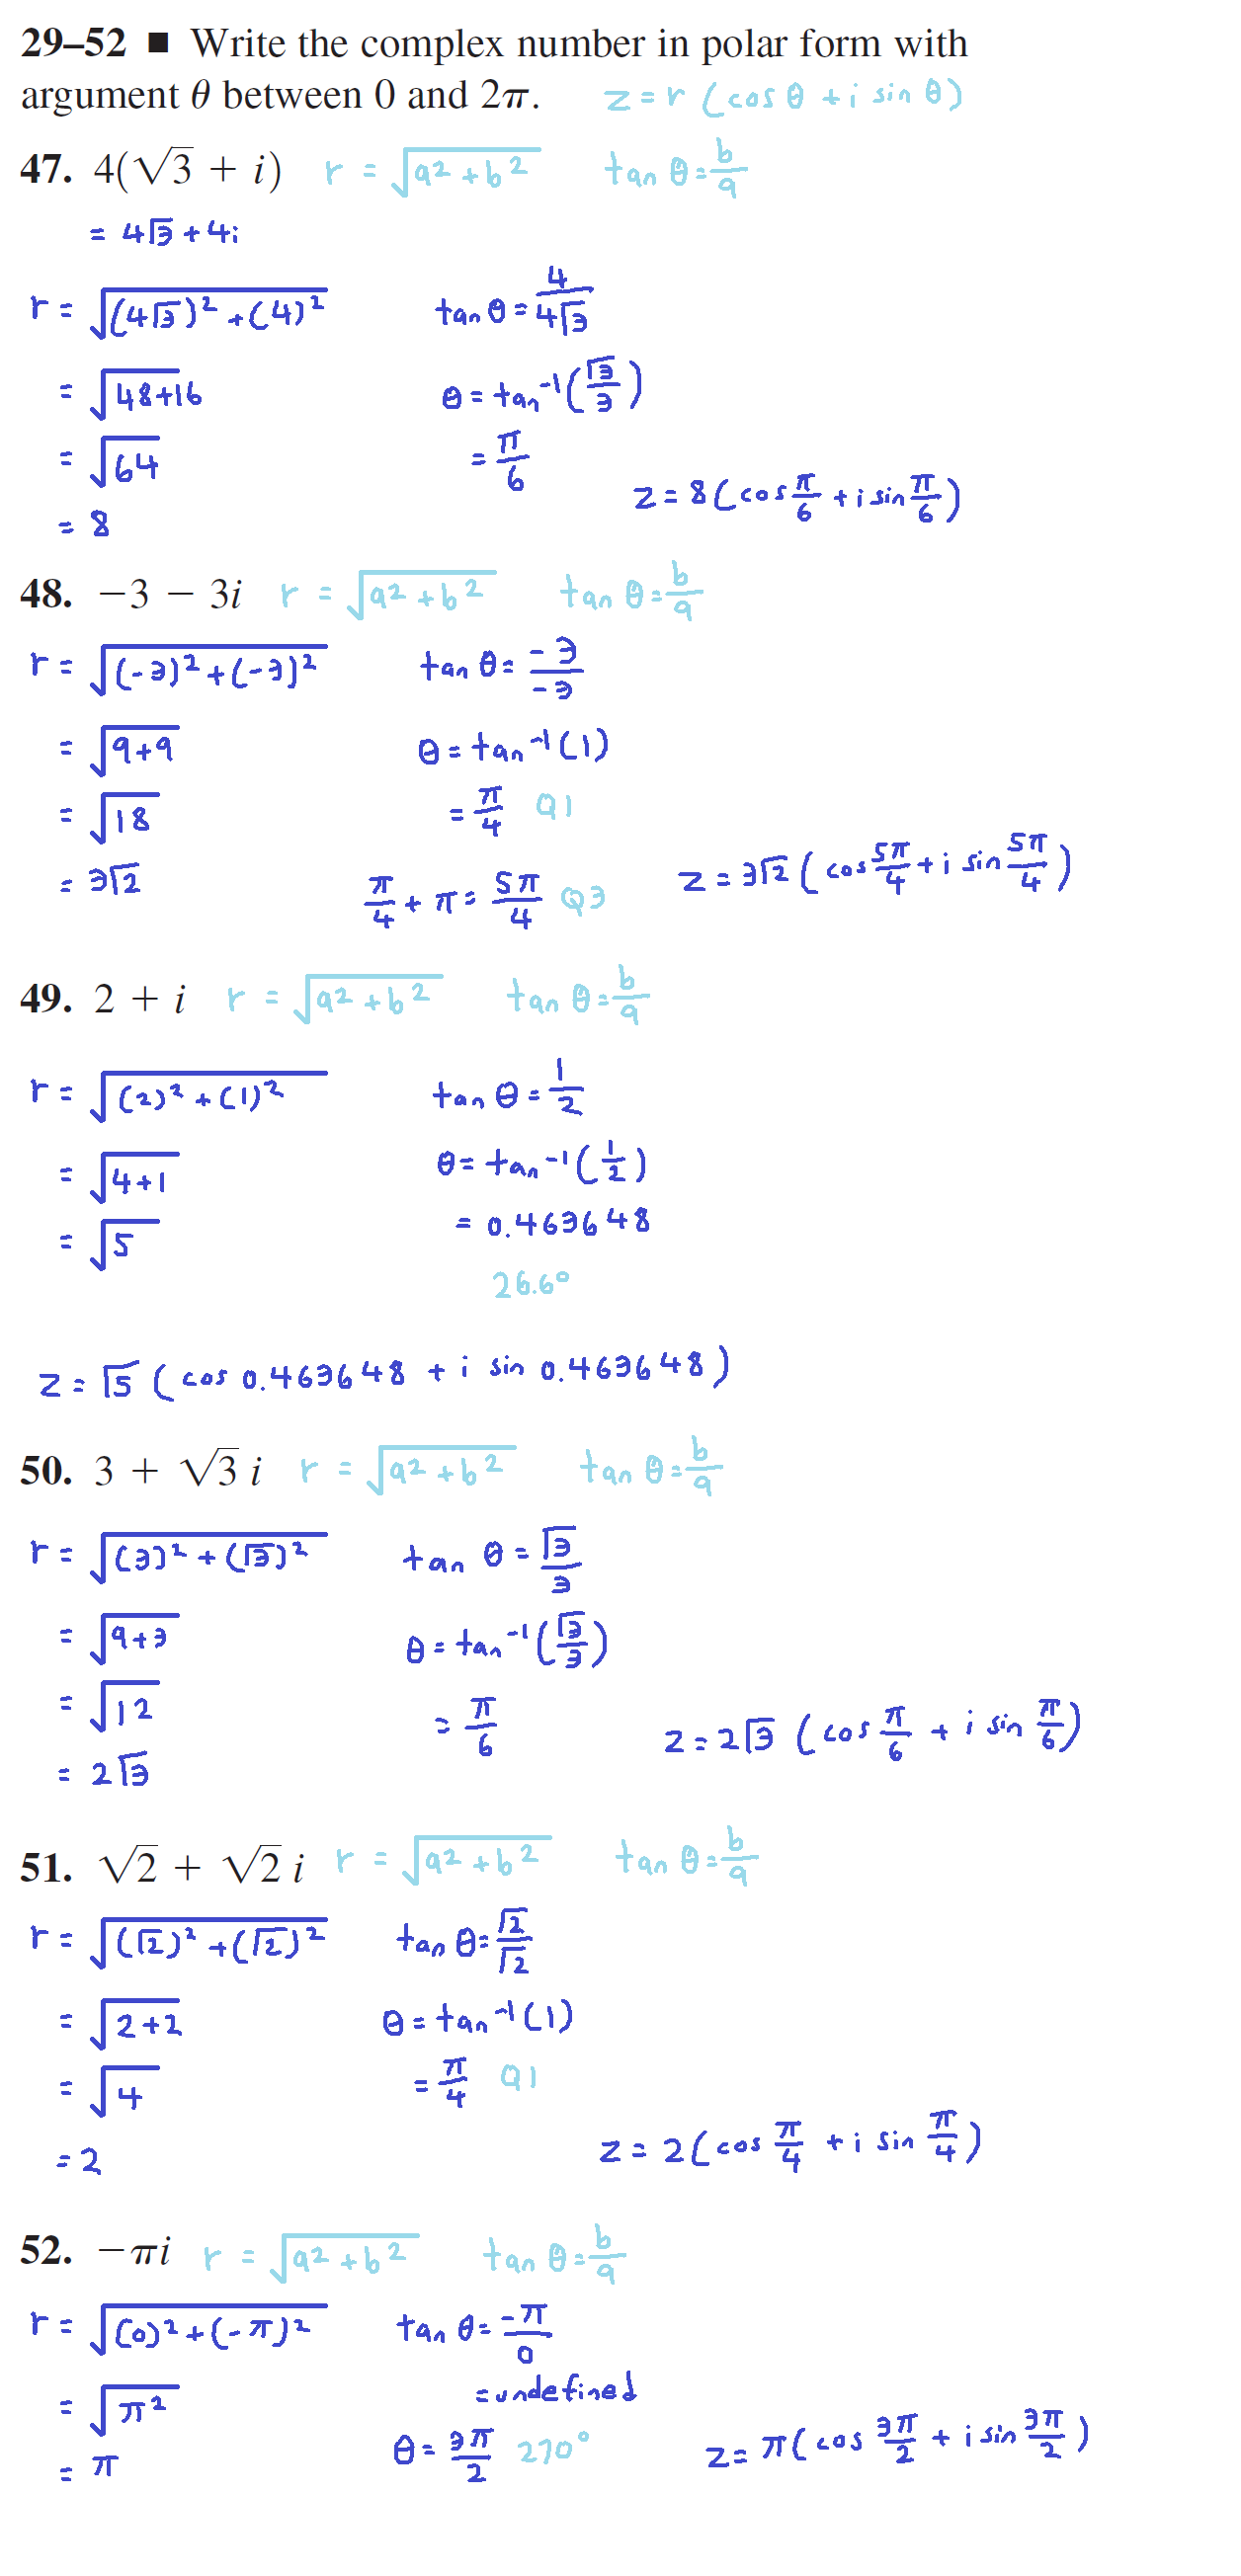 29–52 ■ Write the complex number in polar form with
argument θ between 0 and 2π. z = r (cos θ + i sin θ)
47. 4(√3 + i) r = √(a² + b²) tan θ = b/a
= 4√3 + 4i
r = √((4√3)² + (4)²) tan θ = 4/(4√3)
= √(48+16) θ = tan⁻¹(√3/3)
= √64 = π/6
z = 8(cos π/6 + i sin π/6)
= 8
48. −3 − 3i r = √(a² + b²) tan θ = b/a
r = √((-3)² + (-3)²) tan θ = -3/-3
= √(9+9) θ = tan⁻¹(1)
= √18 = π/4 Q1
= 3√2 π/4 + π = 5π/4 Q3 z = 3√2 (cos 5π/4 + i sin 5π/4)
49. 2 + i r = √(a² + b²) tan θ = b/a
r = √((2)² + (1)²) tan θ = 1/2
= √(4+1) θ = tan⁻¹(1/2)
= √5 = 0.463648
26.6°
z = √5 (cos 0.463648 + i sin 0.463648)
50. 3 + √3 i r = √(a² + b²) tan θ = b/a
r = √((3)² + (√3)²) tan θ = √3/3
= √(9+3) θ = tan⁻¹(√3/3)
= √12 = π/6 z = 2√3 (cos π/6 + i sin π/6)
= 2√3
51. √2 + √2 i r = √(a² + b²) tan θ = b/a
r = √((√2)² + (√2)²) tan θ = √2/√2
= √(2+2) θ = tan⁻¹(1)
= √4 = π/4 Q1
= 2 z = 2(cos π/4 + i sin π/4)
52. −πi r = √(a² + b²) tan θ = b/a
r = √((0)² + (-π)²) tan θ = -π/0
= undefined
= √(π²)
= π θ = 3π/2 270° z = π(cos 3π/2 + i sin 3π/2)